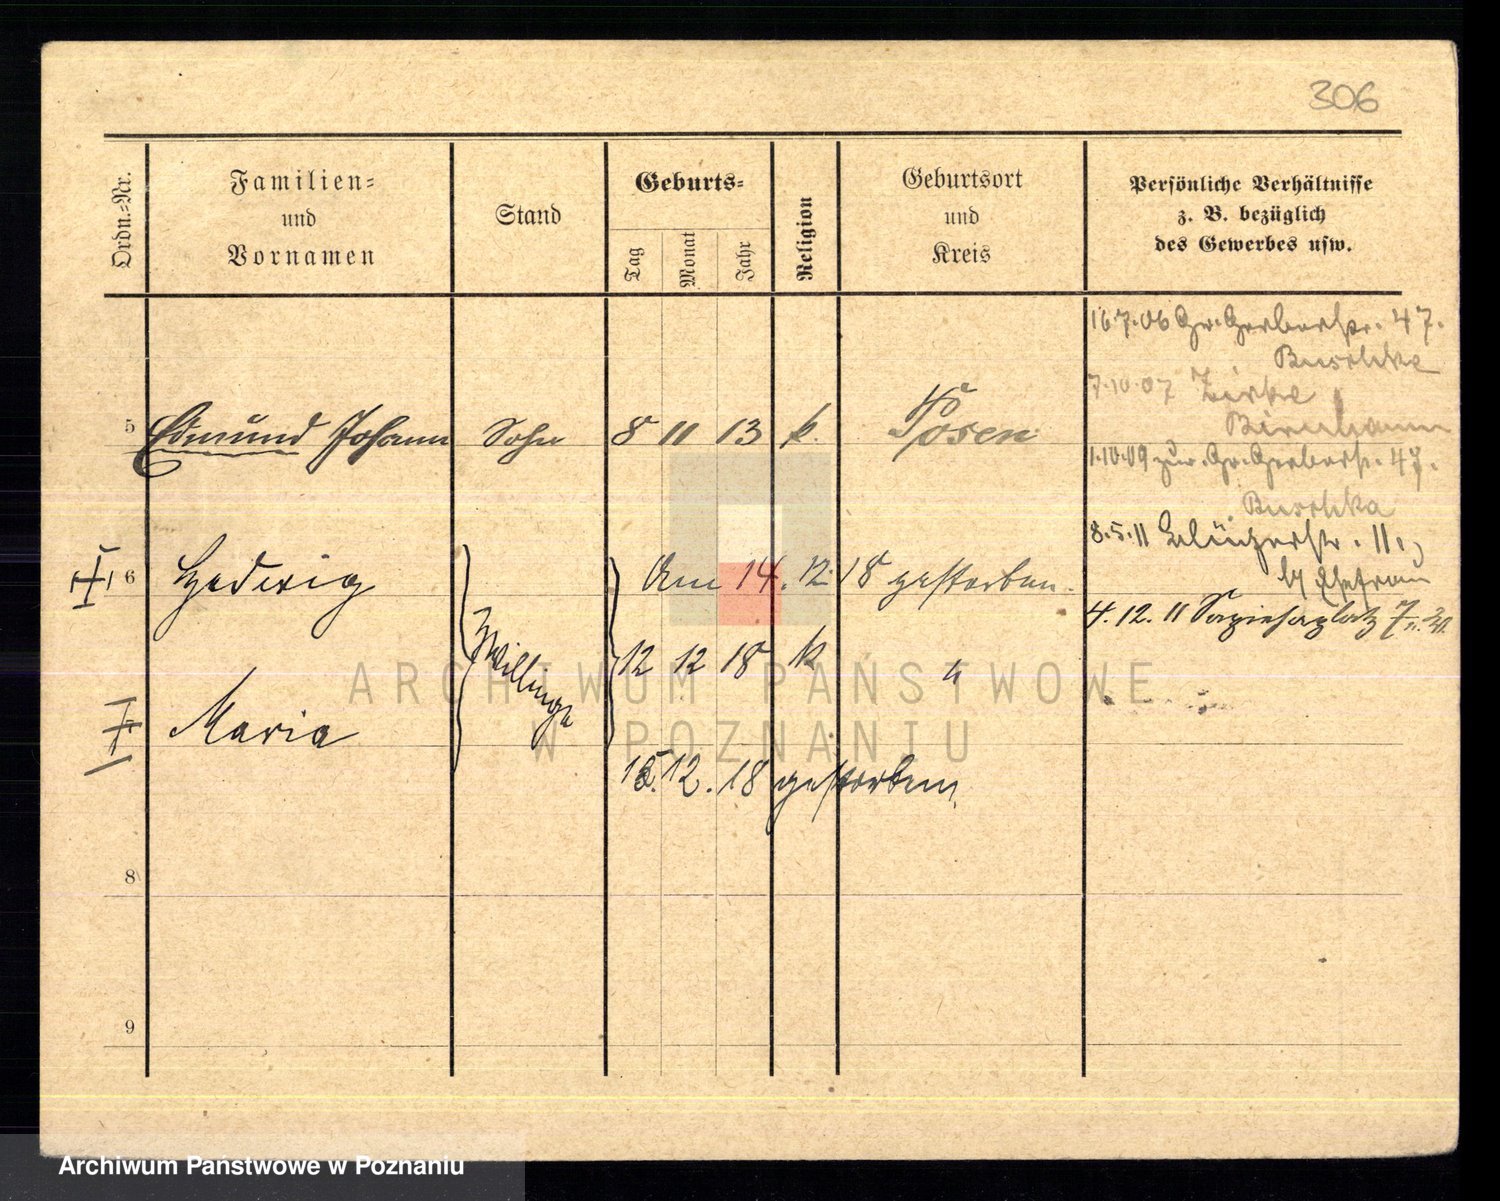 306
Ordn.-Nr.
Familien-
und
Vornamen
Stand
Geburts-
Tag
Monat
Jahr
Religion
Geburtsort
und
Kreis
Persönliche Verhältnisse
z. B. bezüglich
des Gewerbes usw.
16 7.06 Gr. Gerberstr. 47.
Buschke
7.10.07 Zirke
Birnbaum
5 Edmund Johann Sohn 8 11 13 k. Posen
1.10.09 zur. Gr. Gerberstr. 47.
Buschka
8.5.11 11,
b/ Ehefrau
6 Hedwig Am 14. 12. 18 gestorben.
4. 12. 11 Sapiehaplatz 7
Zwillinge 12 12 18 k "
Maria
15. 12. 18 gestorben
8
9
ARCHIWUM PAŃSTWOWE
W POZNANIU
Archiwum Państwowe w Poznaniu